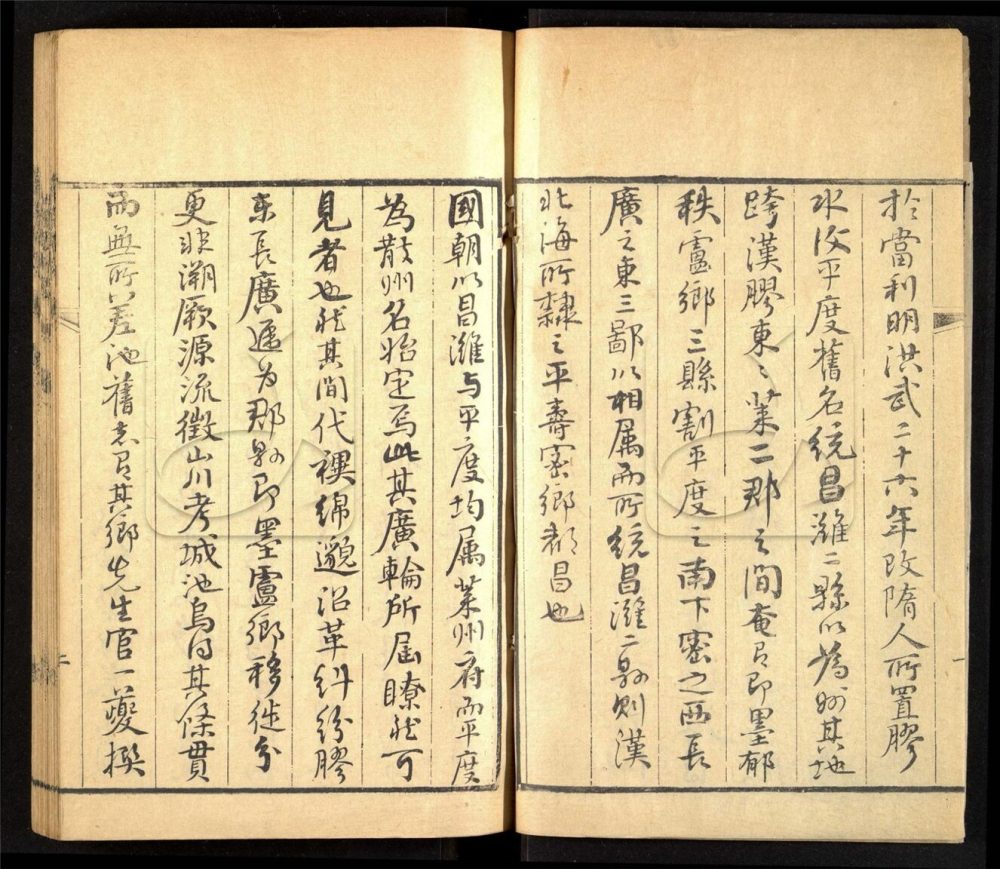 於當利明洪武二十六年改隋人所置膠
水復平度舊名統昌濰二縣以為州其地
跨漢膠東東萊二郡之間奄有即墨郁
秩盧鄉三縣割平度之南下密之西長
廣之東三鄙以相属而所統昌濰二縣則漢
北海所隸之平壽密鄉都昌也
國朝以昌濰与平度均属萊州府而平度
為散州名始定焉此其廣輪所屆瞭然可
見者也然其間代禩綿邈沿革糾紛膠
東長廣遞為郡縣即墨盧鄉移徙分
更非溯厥源流徵山川考城池烏由其條貫
而無所差池舊志有其鄉先生官一夔撰